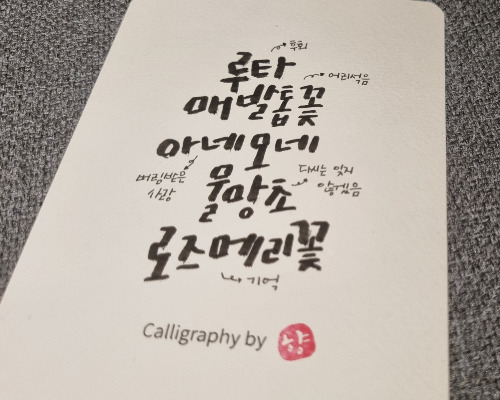 루타
후회
매발톱꽃
어리석음
아네모네
버림받은
사랑
물망초
다시는 잊지
않겠음
로즈메리꽃
기억
Calligraphy by 향